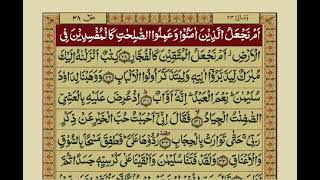 ومالى ٢٣ ص ٣٨
اَمْ نَجْعَلُ الَّذِيْنَ اٰمَنُوْا وَعَمِلُوا الصّٰلِحٰتِ كَالْمُفْسِدِيْنَ فِى
الْاَرْضِ اَمْ نَجْعَلُ الْمُتَّقِيْنَ كَالْفُجَّارِ ۝٢٨ كِتٰبٌ اَنْزَلْنٰهُ اِلَيْكَ
مُبٰرَكٌ لِّيَدَّبَّرُوْٓا اٰيٰتِهٖ وَلِيَتَذَكَّرَ اُولُوا الْاَلْبَابِ ۝٢٩ وَوَهَبْنَا لِدَاوٗدَ
سُلَيْمٰنَ نِعْمَ الْعَبْدُ اِنَّهٗٓ اَوَّابٌ ۝٣٠ اِذْ عُرِضَ عَلَيْهِ بِالْعَشِىِّ
الصّٰفِنٰتُ الْجِيَادُ ۝٣١ فَقَالَ اِنِّىْٓ اَحْبَبْتُ حُبَّ الْخَيْرِ عَنْ ذِكْرِ
رَبِّىْ حَتّٰى تَوَارَتْ بِالْحِجَابِ ۝٣٢ رُدُّوْهَا عَلَىَّ فَطَفِقَ مَسْحًا بِالسُّوْقِ
وَالْاَعْنَاقِ ۝٣٣ وَلَقَدْ فَتَنَّا سُلَيْمٰنَ وَاَلْقَيْنَا عَلٰى كُرْسِيِّهٖ جَسَدًا ثُمَّ